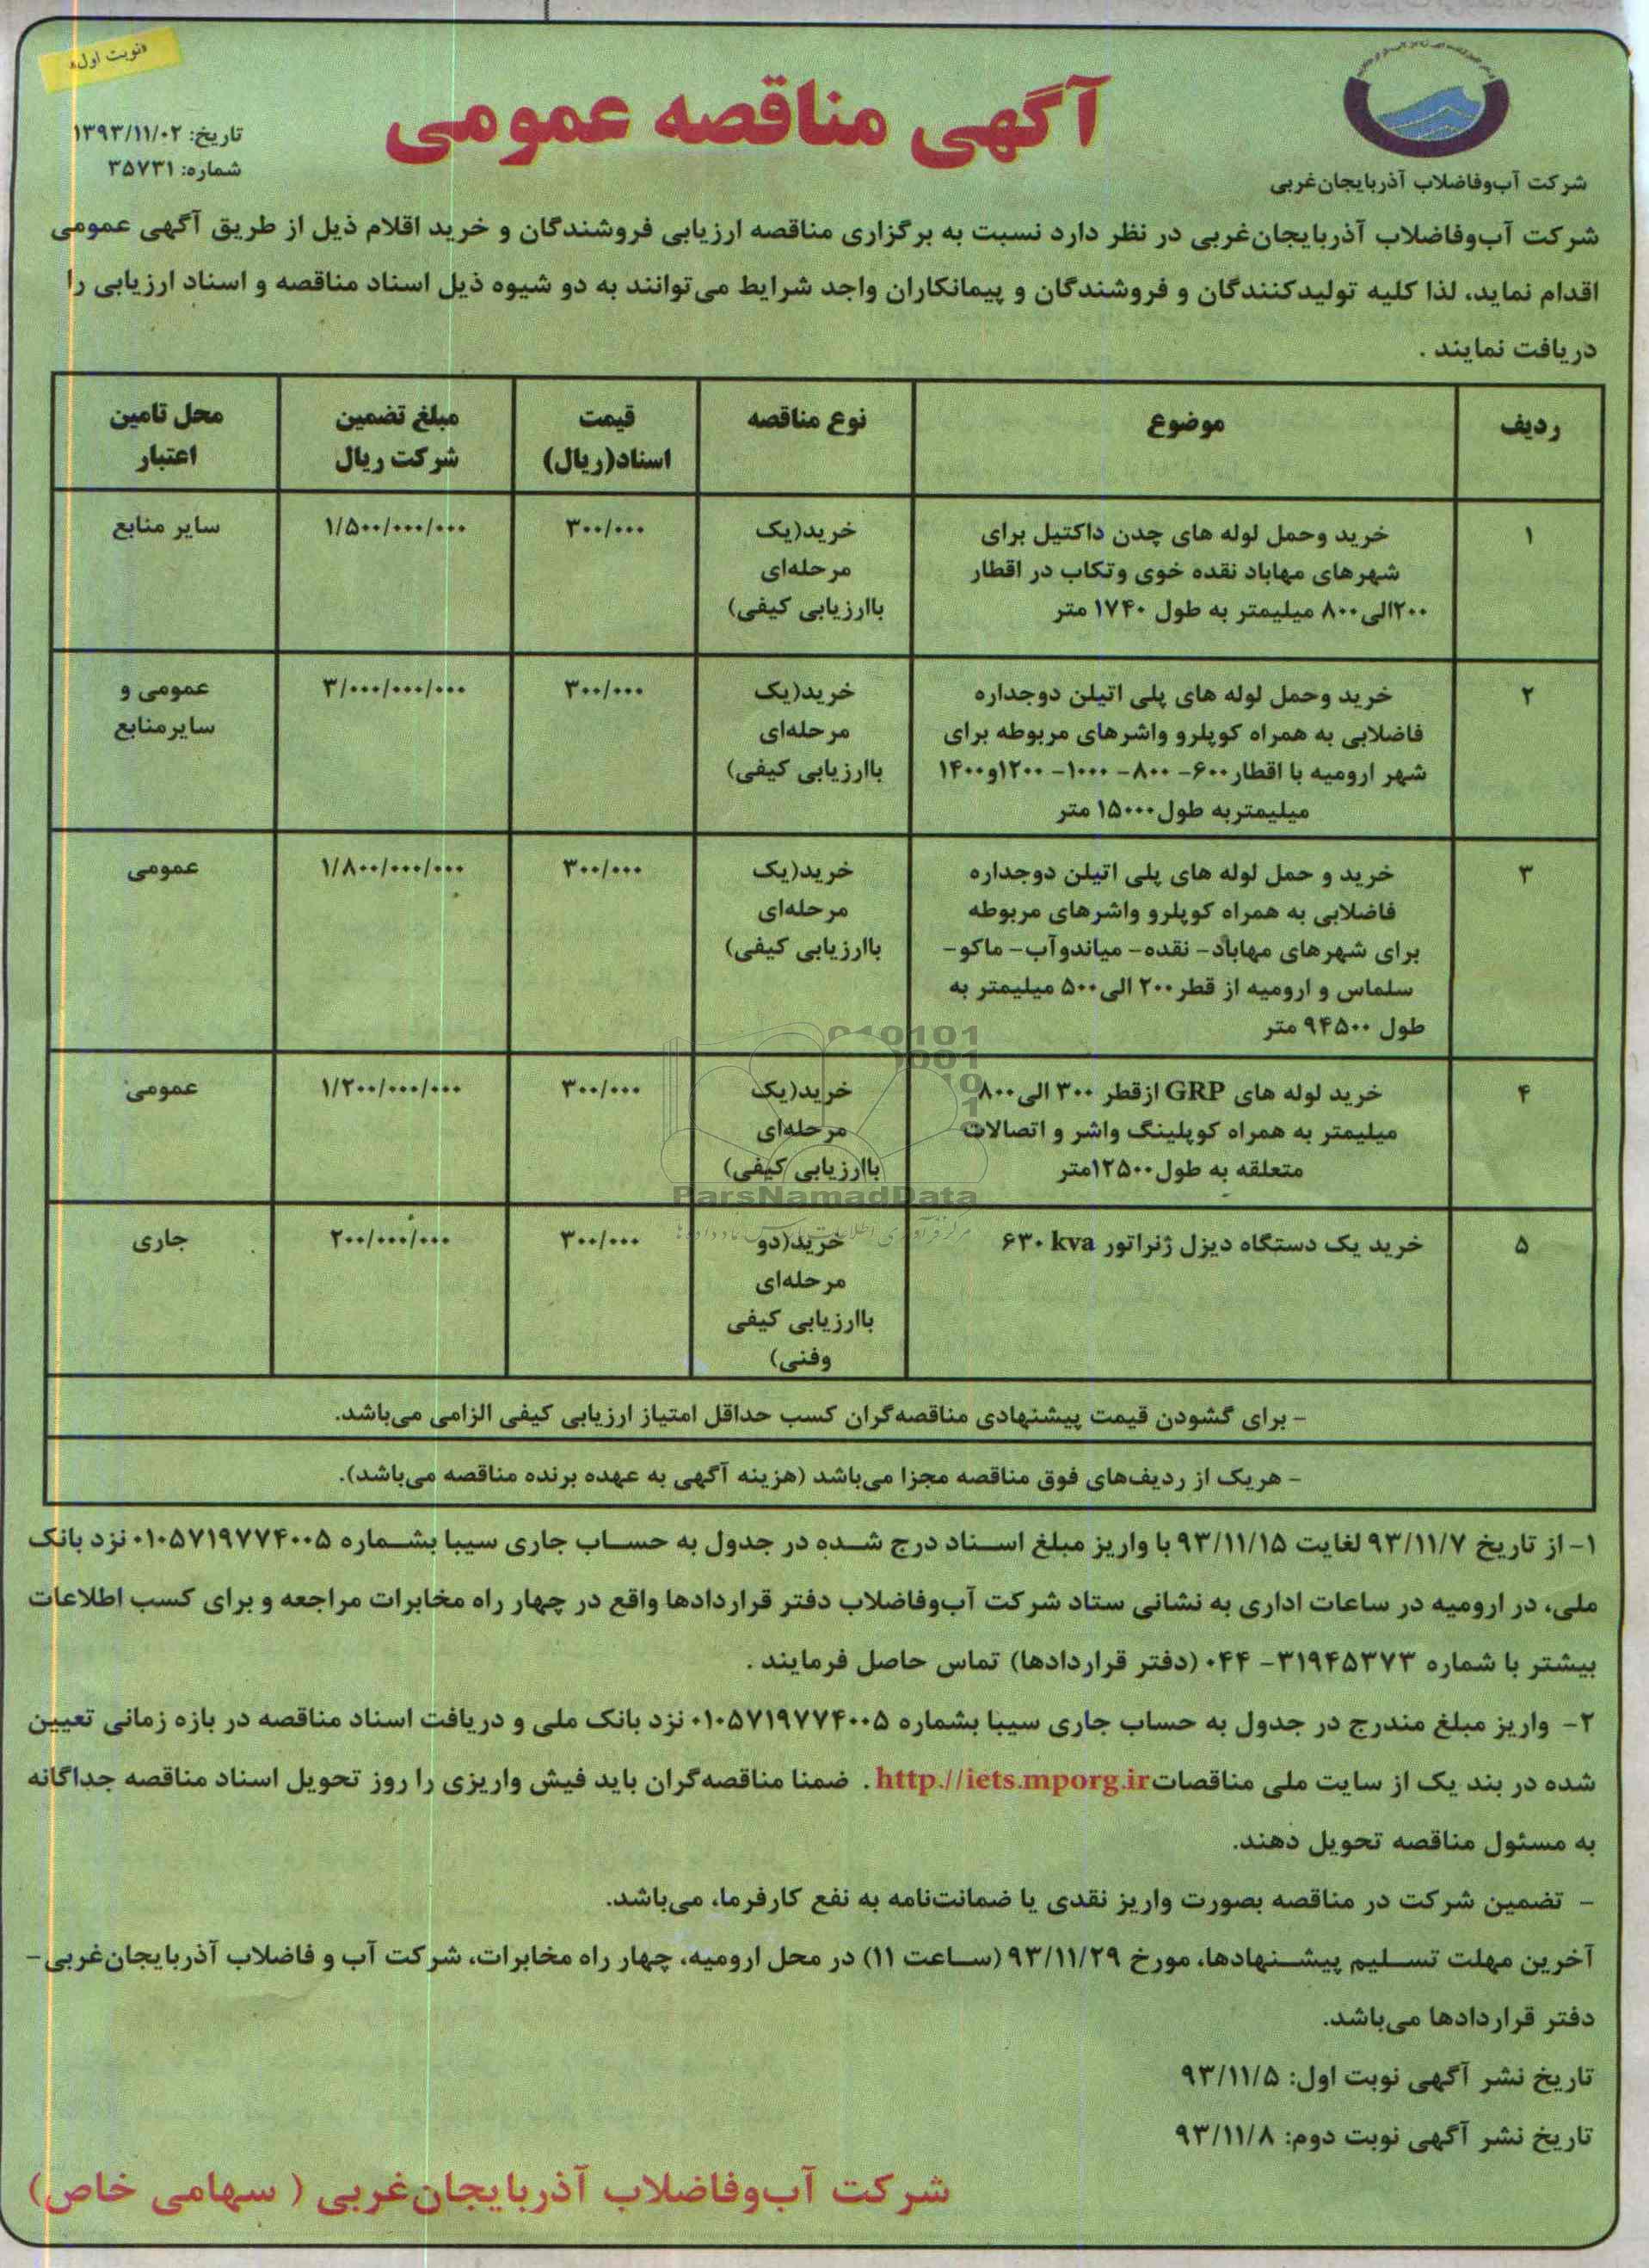 «نوبت اول»
آگهی مناقصه عمومی
تاریخ: ۱۳۹۳/۱۱/۰۲
شماره: ۳۵۷۳۱
شرکت آب‌وفاضلاب آذربایجان‌غربی
شرکت آب‌وفاضلاب آذربایجان‌غربی در نظر دارد نسبت به برگزاری مناقصه ارزیابی فروشندگان و خرید اقلام ذیل از طریق آگهی عمومی
اقدام نماید، لذا کلیه تولیدکنندگان و فروشندگان و پیمانکاران واجد شرایط می‌توانند به دو شیوه ذیل اسناد مناقصه و اسناد ارزیابی را
دریافت نمایند .
ردیف
موضوع
نوع مناقصه
قیمت
اسناد(ریال)
مبلغ تضمین
شرکت ریال
محل تامین
اعتبار
۱
خرید وحمل لوله های چدن داکتیل برای
شهرهای مهاباد نقده خوی وتکاب در اقطار
۲۰۰الی۸۰۰ میلیمتر به طول ۱۷۴۰ متر
خرید(یک
مرحله‌ای
باارزیابی کیفی)
۳۰۰/۰۰۰
۱/۵۰۰/۰۰۰/۰۰۰
سایر منابع
۲
خرید وحمل لوله های پلی اتیلن دوجداره
فاضلابی به همراه کوپلرو واشرهای مربوطه برای
شهر ارومیه با اقطار۶۰۰- ۸۰۰- ۱۰۰۰- ۱۲۰۰و۱۴۰۰
میلیمتربه طول۱۵۰۰۰ متر
خرید(یک
مرحله‌ای
باارزیابی کیفی)
۳۰۰/۰۰۰
۳/۰۰۰/۰۰۰/۰۰۰
عمومی و
سایرمنابع
۳
خرید و حمل لوله های پلی اتیلن دوجداره
فاضلابی به همراه کوپلرو واشرهای مربوطه
برای شهرهای مهاباد- نقده- میاندوآب- ماکو-
سلماس و ارومیه از قطر۲۰۰ الی۵۰۰ میلیمتر به
طول ۹۴۵۰۰ متر
خرید(یک
مرحله‌ای
باارزیابی کیفی)
۳۰۰/۰۰۰
۱/۸۰۰/۰۰۰/۰۰۰
عمومی
۴
خرید لوله های GRP ازقطر ۳۰۰ الی۸۰۰
میلیمتر به همراه کوپلینگ واشر و اتصالات
متعلقه به طول۱۲۵۰۰متر
خرید(یک
مرحله‌ای
باارزیابی کیفی)
۳۰۰/۰۰۰
۱/۲۰۰/۰۰۰/۰۰۰
عمومی
ParsNamadData
۵
خرید یک دستگاه دیزل ژنراتور ۶۳۰ kva
خرید(دو
مرحله‌ای
باارزیابی کیفی
وفنی)
۳۰۰/۰۰۰
۲۰۰/۰۰۰/۰۰۰
جاری
- برای گشودن قیمت پیشنهادی مناقصه‌گران کسب حداقل امتیاز ارزیابی کیفی الزامی می‌باشد.
- هریک از ردیف‌های فوق مناقصه مجزا می‌باشد (هزینه آگهی به عهده برنده مناقصه می‌باشد).
۱- از تاریخ ۹۳/۱۱/۷ لغایت ۹۳/۱۱/۱۵ با واریز مبلغ اسناد درج شده در جدول به حساب جاری سیبا بشماره ۰۱۰۵۷۱۹۷۷۴۰۰۵ نزد بانک
ملی، در ارومیه در ساعات اداری به نشانی ستاد شرکت آب‌وفاضلاب دفتر قراردادها واقع در چهار راه مخابرات مراجعه و برای کسب اطلاعات
بیشتر با شماره ۳۱۹۴۵۳۷۳- ۰۴۴ (دفتر قراردادها) تماس حاصل فرمایند .
۲- واریز مبلغ مندرج در جدول به حساب جاری سیبا بشماره ۰۱۰۵۷۱۹۷۷۴۰۰۵ نزد بانک ملی و دریافت اسناد مناقصه در بازه زمانی تعیین
شده در بند یک از سایت ملی مناقصات http.//iets.mporg.ir . ضمنا مناقصه‌گران باید فیش واریزی را روز تحویل اسناد مناقصه جداگانه
به مسئول مناقصه تحویل دهند.
- تضمین شرکت در مناقصه بصورت واریز نقدی یا ضمانت‌نامه به نفع کارفرما، می‌باشد.
آخرین مهلت تسلیم پیشنهادها، مورخ ۹۳/۱۱/۲۹ (ساعت ۱۱) در محل ارومیه، چهار راه مخابرات، شرکت آب و فاضلاب آذربایجان‌غربی-
دفتر قراردادها می‌باشد.
تاریخ نشر آگهی نوبت اول: ۹۳/۱۱/۵
تاریخ نشر آگهی نوبت دوم: ۹۳/۱۱/۸
شرکت آب‌وفاضلاب آذربایجان‌غربی ( سهامی خاص)